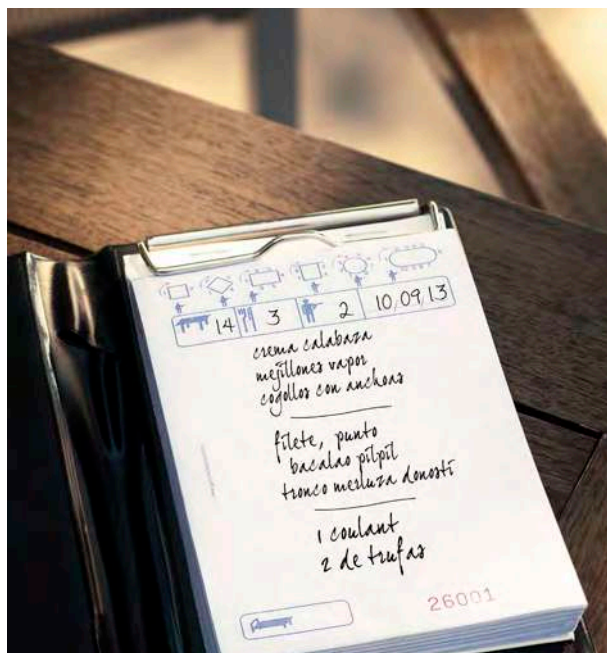 14 3 2 10,09,13
crema calabaza
mejillones vapor
cogollos con anchoas
filete, punto
bacalao pilpil
tronco merluza donosti
1 coulant
2 de trufas
26001